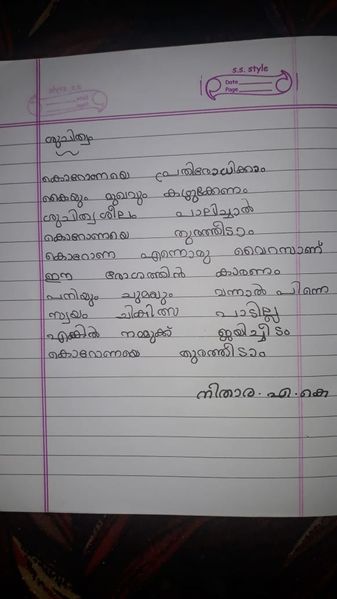 s.s. style
Date
Page
ശുചിത്വം
കൊറോണയെ പ്രതിരോധിക്കാം
കൈയും മുഖവും കഴുകേണം
ശുചിത്വശീലം പാലിച്ചാൽ
കൊറോണയെ തുരത്തീടാം
കൊറോണ എന്നൊരു വൈറസാണ്
ഈ രോഗത്തിൻ കാരണം
പനിയും ചുമയും വന്നാൽ പിന്നെ
സ്വയം ചികിത്സ പാടില്ല
എങ്കിൽ നമ്മുക്ക് ജയിച്ചീടാം
കൊറോണയെ തുരത്തീടാം
നിതാര. എ. കെ